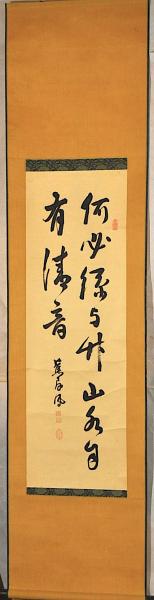 何必絲与竹山水自
有清音